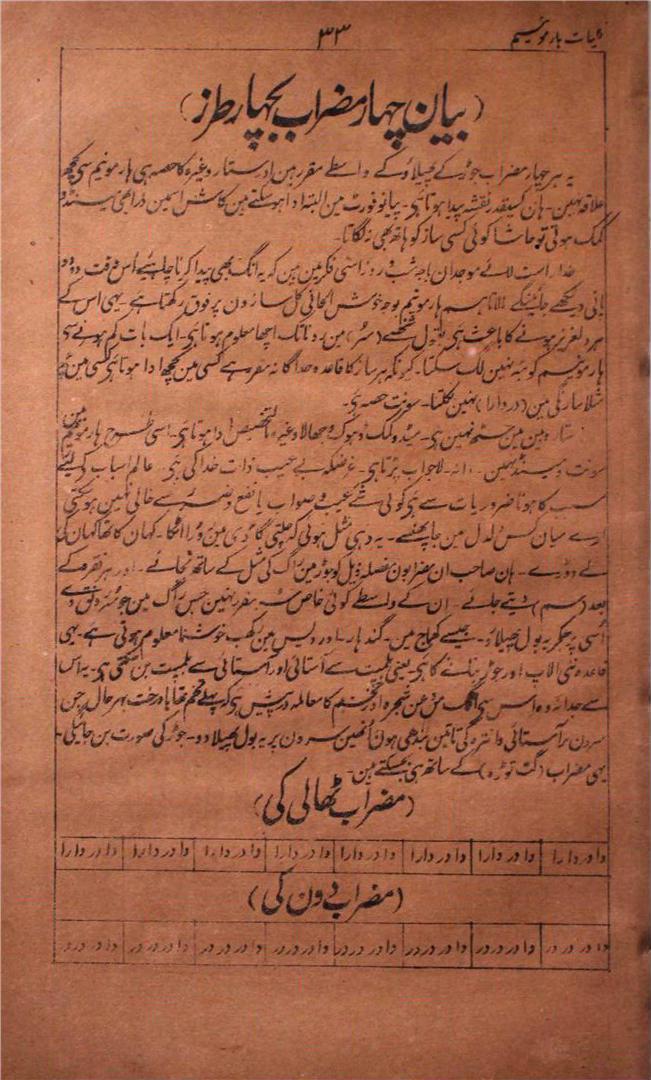 ۳۳
(بیان چہار مضراب بچہار طرز)
یہ ہر چہار مضراب جوڑ کے پھیلاؤ کے واسطے مقرر ہین اور ستار وغیرہ کا حصہ ہی ہارمونیم سی کچھ
علاقہ نہین - ہان کسیقدر نقشہ پیدا ہوتا ہی - پیانو فورٹ مین البتہ ادا ہو سکتے ہین کاش اسمین ذرا بھی مینڈ و
گمک ہوتی تو حاشا کوئی کسی ساز کو ہاتھ بھی نہ لگاتا -
خدا راست لائے موجدان باجہ شب و روز اسی فکر مین ہین کہ یہ انگ بھی پیدا کرنا چاہیے اُس وقت دودھ
پانی دیکھے جائینگے الا تاہم ہارمونیم بوجہ خوش الحانی کل سازون پر فوق رکھتا ہے - یہی اس کے
ہر دلعزیز ہونے کا باعث ہی بقول شخصے (سُر) مین رونا تک اچھا معلوم ہوتا ہی - ایک بات کم ہونے سی
ہارمونیم کو بٹہ نہین لگ سکتا - کیونکہ ہر ساز کا قاعدہ جداگانہ مقرر ہے کسی مین کچھ ادا ہوتا ہی کسی مین کچھ
مثلا سارنگی مین (دردارا) نہین نکلتا - سونت حصہ ہی -
ستارہ مین مین ختم نہین ہی - مینڈ و گمک و ہوک و جھالا وغیرہ بالتخصیص ادا ہوتا ہی - اسی طرح ہارمونیم مین
سونت و مینڈ نہین - دانہ لاجواب پڑتا ہی - غرضکہ بے عیب ذات خدا کی ہی - عالم اسباب کے لیئے
سبب کا ہونا ضروریات سے ہی کوئی شے عیب و صواب یا نفع و ضرر سے خالی نہین ہو سکتی
ارے میان کس دلدل مین جا پھنسے - یہ وہی مثل ہوئی کہ چلتی گاڑی مین روڑا اٹکا - کہان کا تھا کہان کی
لے دوڑے - ہان صاحب ان مضرابون مفصلہ ذیل کو جوڑ مین راگ کی شکل کے ساتھ بجائے - اور ہر فقرہ کے
بعد (سم) دیتے جائے - ان کے واسطے کوئی خاص سُر مقرر نہین جس راگ مین جو سُر رونق دے
اُسی پر جھکر یہ بول پھیلاؤ - جیسے کھماج مین - گندھار - اور دیس مین رکھب خوشنما معلوم ہوتی ہے - یہی
قاعدہ نئی الاپ اور جوڑ بنانے کا ہی یعنی بلمپت سے آستائی اور آستائی سے بلمپت بن سکتی ہی - یہ اس
سے جدا نہ وہ اس سی الگ من و عن شجرہ اور تخم کا معاملہ درپیش ہی کہ پہلے تخم تھا یا درخت بہرحال جن
سردن پر آستائی و انترہ کی تانین بندھی ہون اُنھین سردن پر یہ بول پھیلا دو - جوڑ کی صورت بن جائیگی -
یہی مضراب (گت توڑہ) کے ساتھ ہی بج سکتے ہین -
(مضراب ٹھالی کی)
دا در دارا | دا در دارا | دا در دارا | دا در دارا | دا در دارا | دا در دارا | دا در دارا | دا در دارا
(مضراب دون کی)
دا در در در | دا در در در | دا در در در | دا در در در | دا در در در | دا در در در | دا در در در | دا در در در